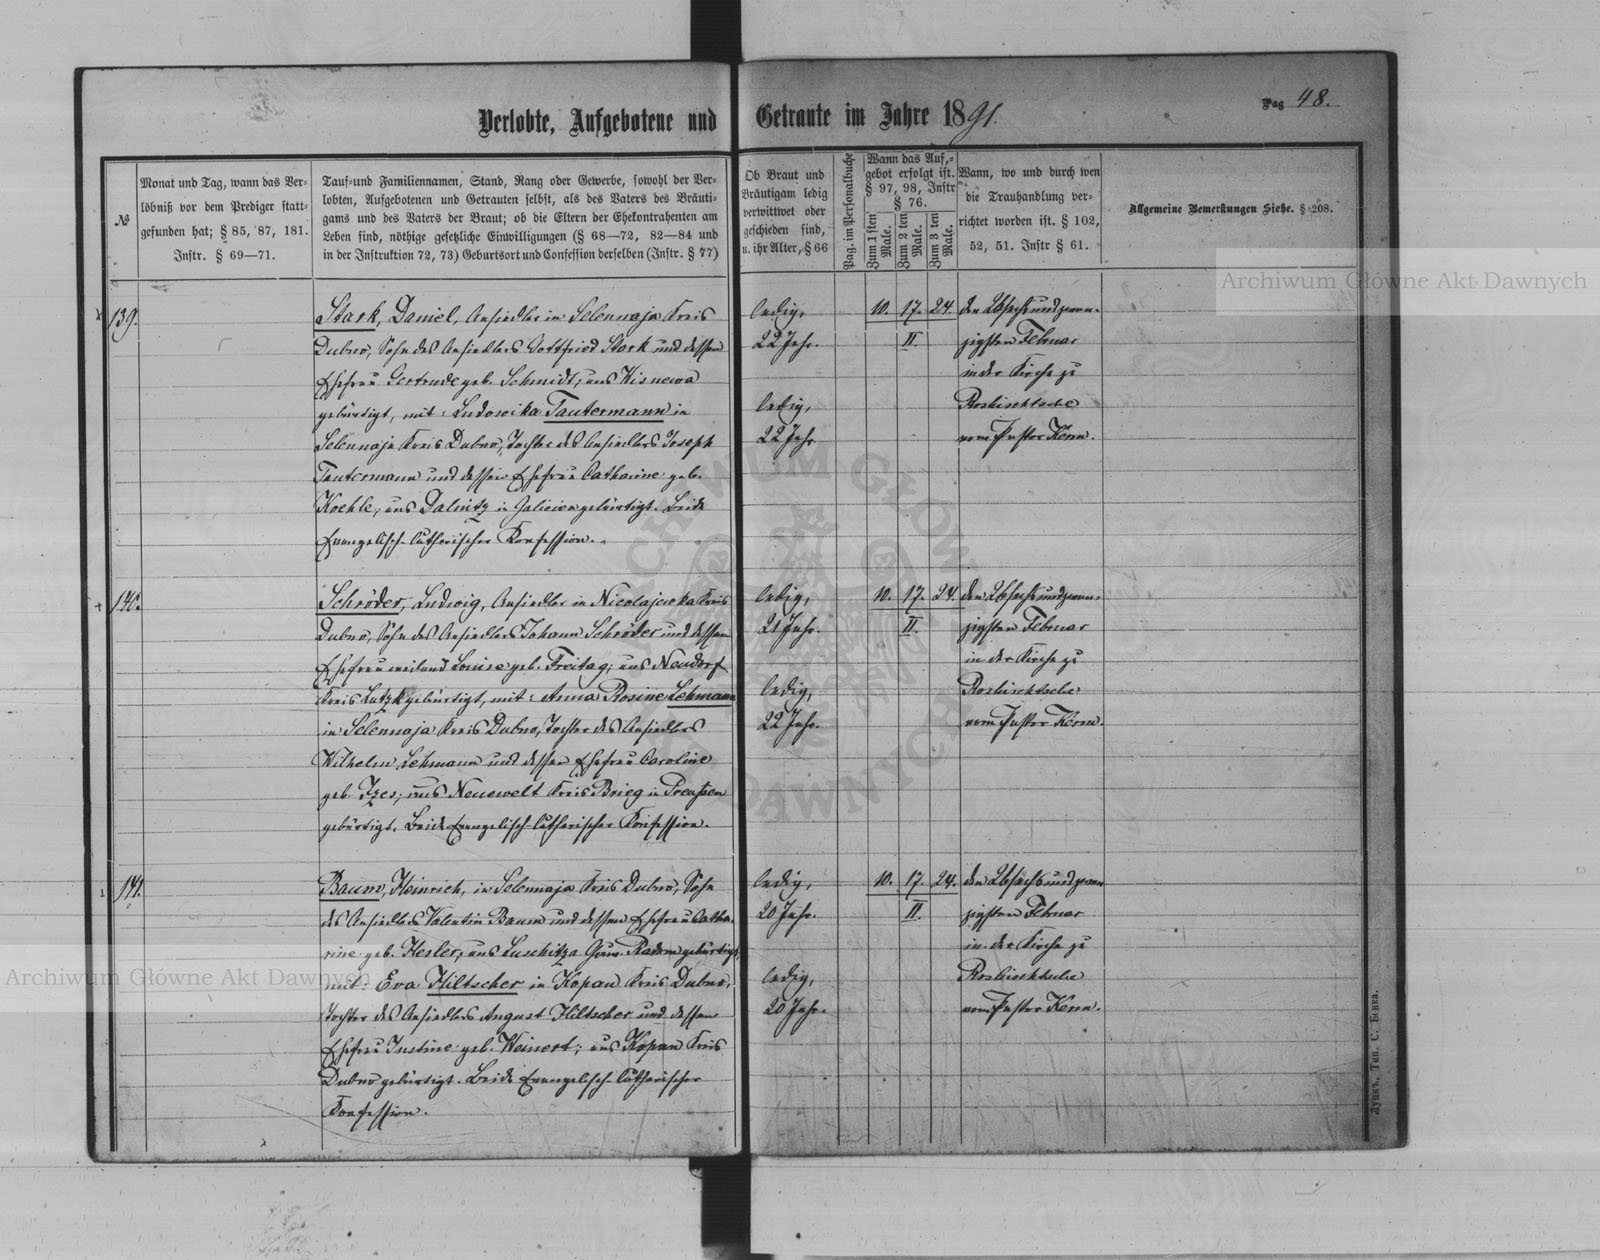 Verlobte, Aufgebotene und Getraute im Jahre 1891.
Pag 48.
№
Monat und Tag, wann das Ver-
löbniß vor dem Prediger statt-
gefunden hat; § 85, 87, 181.
Instr. § 69—71.
Tauf-und Familiennamen, Stand, Rang oder Gewerbe, sowohl der Ver-
lobten, Aufgebotenen und Getrauten selbst, als des Vaters des Bräuti-
gams und des Vaters der Braut; ob die Eltern der Ehekontrahenten am
Leben sind, nöthige gesetzliche Einwilligungen (§ 68—72, 82—84 und
in der Instruktion 72, 73) Geburtsort und Confession derselben (Instr. § 77)
Ob Braut und
Bräutigam ledig
verwittwet oder
geschieden sind,
u. ihr Alter, § 66
Pag. im Personalbuche
Wann das Auf-
gebot erfolgt ist.
§ 97, 98, Instr
§ 76.
Zum 1sten Male.
Zum 2ten Male.
Zum 3ten Male.
Wann, wo und durch wen
die Trauhandlung ver-
richtet worden ist. § 102,
52, 51. Instr § 61.
Allgemeine Bemerkungen Siehe. § 208.
139.
Stark, Daniel, Ansiedler in Selennaja Kreis
Dubno, Sohn des Ansiedlers Gottfried Stark und dessen
Ehefrau Gertrude geb. Schmidt; aus Wisnewa
gebürtigt, mit: Ludowika Tautermann in
Selennaja Kreis Dubno, Tochter des Ansiedlers Joseph
Tautermann und dessen Ehefrau Catharine geb.
Koehle; aus Dalnitz in Galicien gebürtigt. Beide
Evangelisch-lutherischer Konfession.
ledig,
22 Jahr.
ledig,
22 Jahr
10. 17. 24.
II.
den 26 sechsundzwan-
zigsten Februar
in der Kirche zu
Roshischtsche
vom Pastor Kern.
140.
Schröder, Ludwig, Ansiedler in Nicolajewka Kreis
Dubno, Sohn des Ansiedlers Johann Schröder und dessen
Ehefrau weiland Louise geb. Freitag; aus Neudorf
Kreis Lutzk gebürtigt, mit: Anna Rosine Lehmann
in Selennaja Kreis Dubno, Tochter des Ansiedlers
Wilhelm Lehmann und dessen Ehefrau Caroline
geb. Jzes; aus Neuewelt Kreis Brieg in Preußen
gebürtigt. Beide Evangelisch-lutherischer Konfession.
ledig,
21 Jahr.
ledig,
22 Jahr.
10. 17. 24.
II.
den 26 sechsundzwan-
zigsten Februar
in der Kirche zu
Roshischtsche
vom Pastor Kern.
141.
Baum, Heinrich, in Selennaja Kreis Dubno, Sohn
des Ansiedlers Valentin Baum und dessen Ehefrau Catha-
rine geb. Hesler; aus Luschitza Gouv. Radom gebürtigt,
mit: Eva Hiltscher in Kopan Kreis Dubno,
Tochter des Ansiedlers August Hiltscher und dessen
Ehefrau Justine geb. Weinert; aus Kopan Kreis
Dubno gebürtigt. Beide Evangelisch-lutherischer
Konfession.
ledig,
20 Jahr.
ledig,
20 Jahr.
10. 17. 24.
II.
den 26 sechsundzwan
zigsten Februar
in der Kirche zu
Roshischtsche
vom Pastor Kern.
Луцкъ, Тип. С. Бика.
Archiwum Główne Akt Dawnych
Archiwum Główne Akt Dawnych
ARCHIWUM GŁÓWNE AKT DAWNYCH